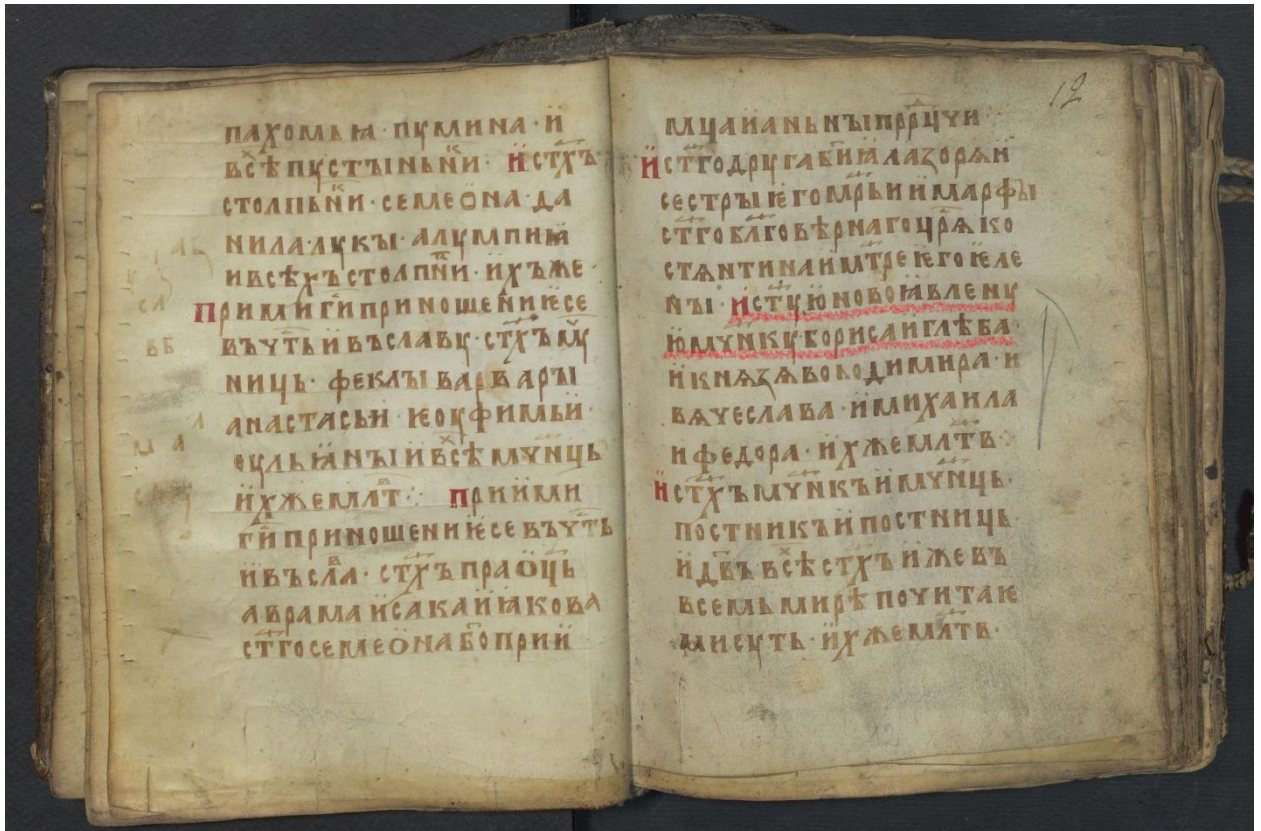 пахомьꙗ · пумина · и
всѣпустыньни · истхъ
столпьни · семеона · да
нила · лукы · алумпиꙗ
ивсѣхъстолпни · ихъже ·
примигипришениѥсе
въчтьивъславу · стхъму
ниць · феклы варвары
анастасьи · ѥоуфимьи ·
оульꙗныивсѣмчнць
ихжемлт · приими
гиприношениѥсевъчть
ивъсла · стхъпраоць
аврамаисакаиꙗкова
стгосемеонабоприи
12
мцаианьныпррцчи ·
истгодругабиꙗлазорѧи
сестрыѥгомрьииимарфы
стгоблговѣрнагоцрѧко
стѧнтинаимтреѥгоѥле
ны · истуюновоꙗвлену
юмчнкуборисаиглѣба ·
икнѧзѧволодимира · и
вѧчеслава · имихаила
ифедора · ихжемлтв ·
истхъмчнкъимчнць ·
постникъипостниць ·
идвъвсѣстхъижевъ
всемьмирѣпочитаѥ
мисуть · ихжемлтв ·